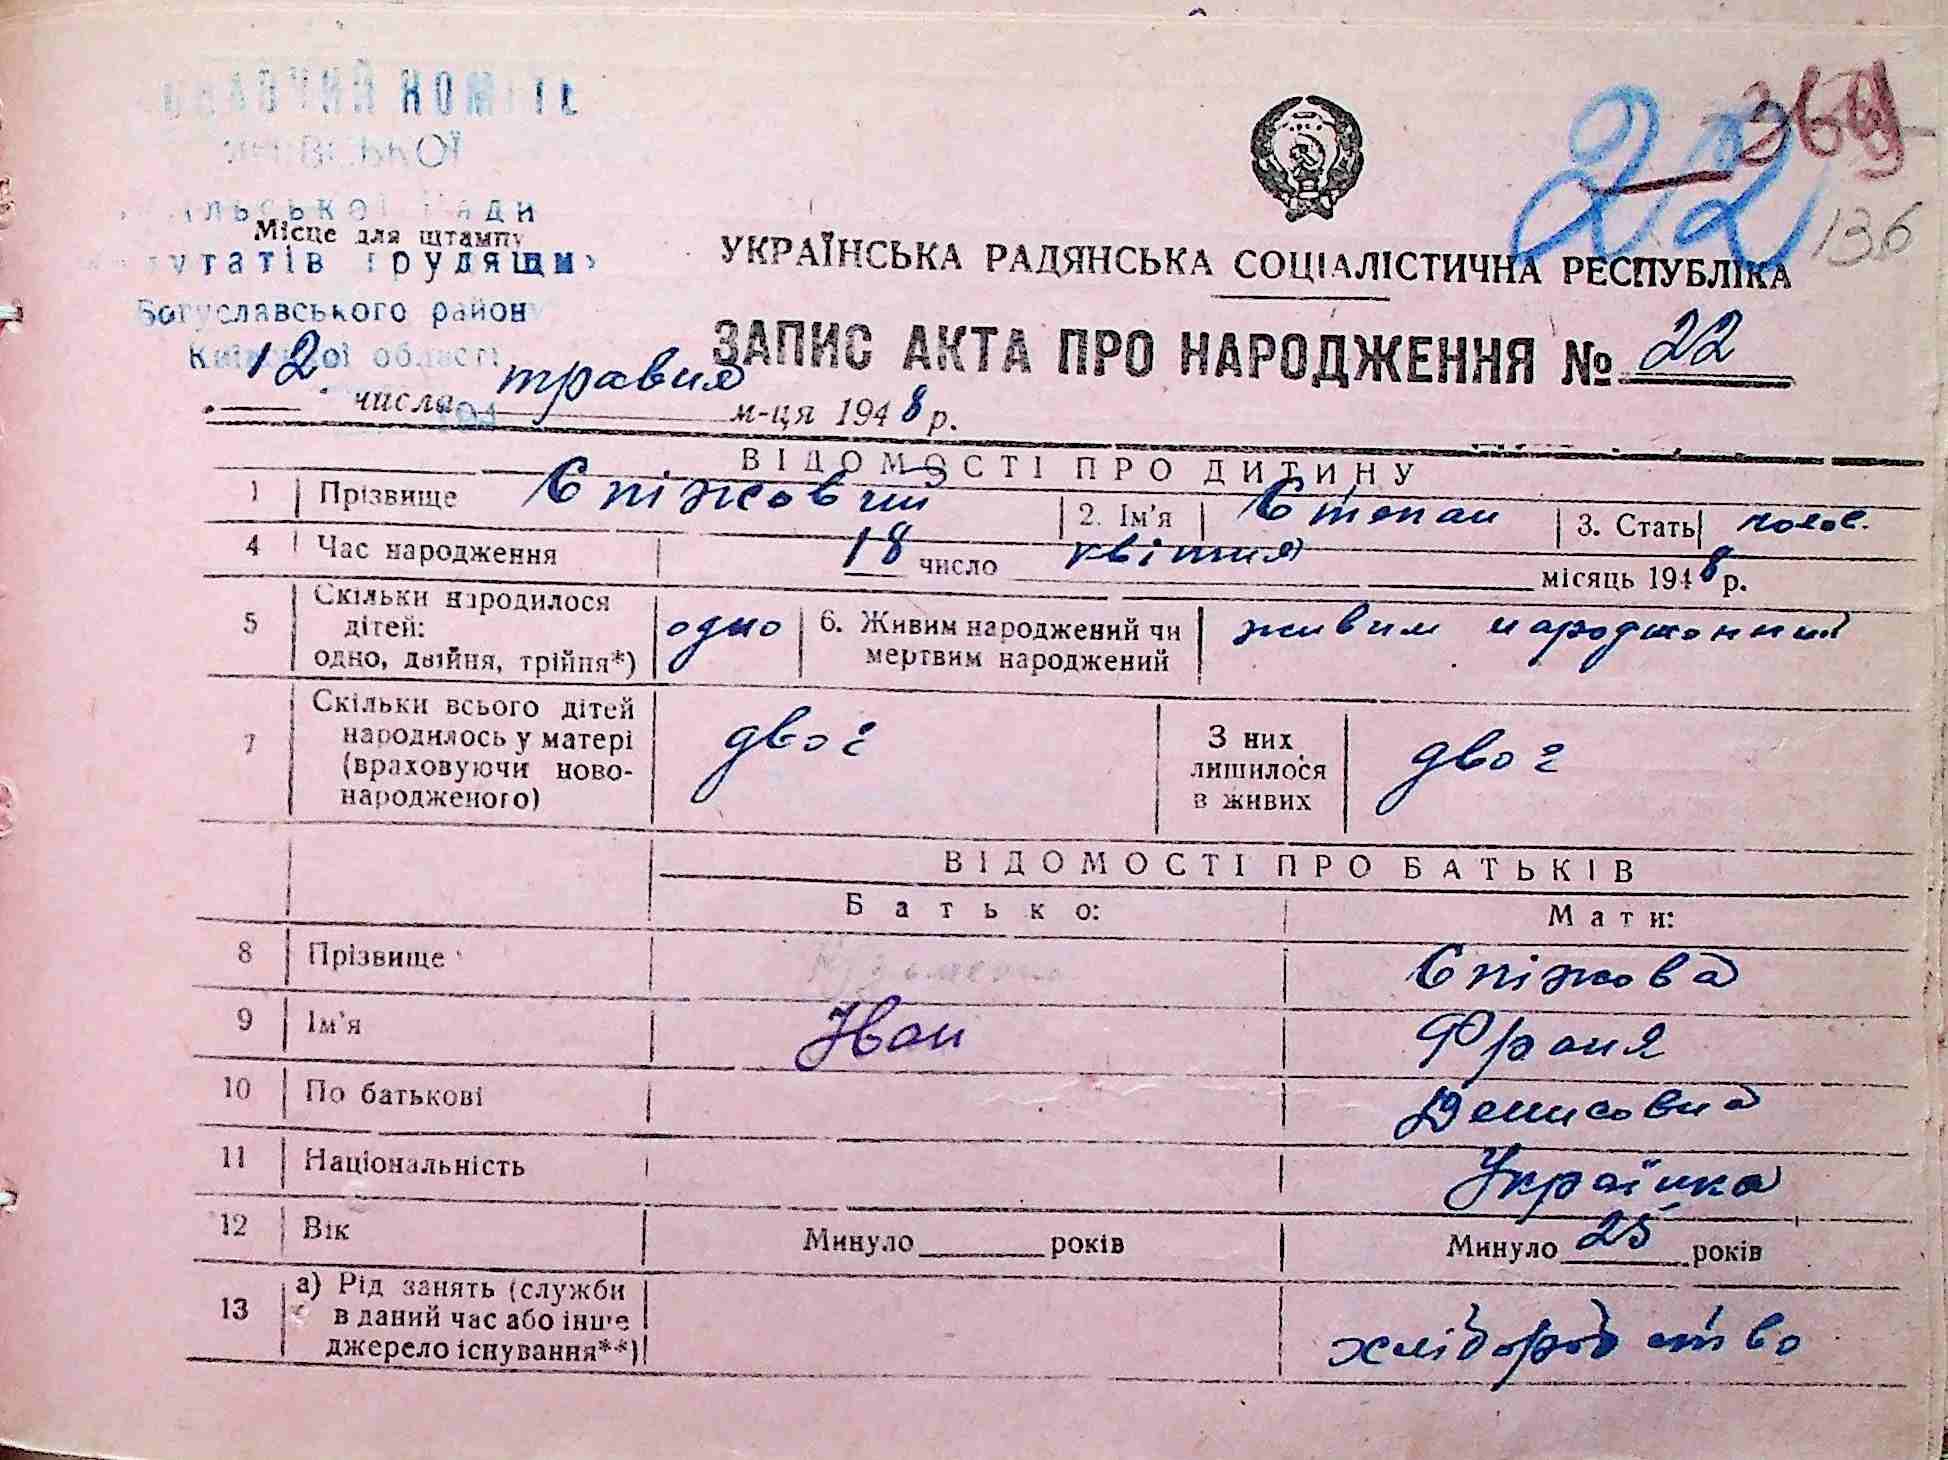 22
369
136
Місце для штампу
Богуславського району
Київської області
УКРАЇНСЬКА РАДЯНСЬКА СОЦІАЛІСТИЧНА РЕСПУБЛІКА
ЗАПИС АКТА ПРО НАРОДЖЕННЯ № 22
12 числа травня м-ця 1948 р.
ВІДОМОСТІ ПРО ДИТИНУ
1 Прізвище Єпіжовий 2. Ім'я Степан 3. Стать чолов.
4 Час народження 18 число квітня місяць 1948 р.
5 Скільки народилося дітей: одно, двійня, трійня*) одно 6. Живим народжений чи мертвим народжений живим народженний
7 Скільки всього дітей народилось у матері (враховуючи ново-народженого) двоє З них лишилося в живих двоє
ВІДОМОСТІ ПРО БАТЬКІВ
Батько: Мати:
8 Прізвище Єпіжова
9 Ім'я Іван Франя
10 По батькові Денисовна
11 Національність Українка
12 Вік Минуло років Минуло 25 років
13 а) Рід занять (служби в даний час або інше джерело існування**) хліборобство